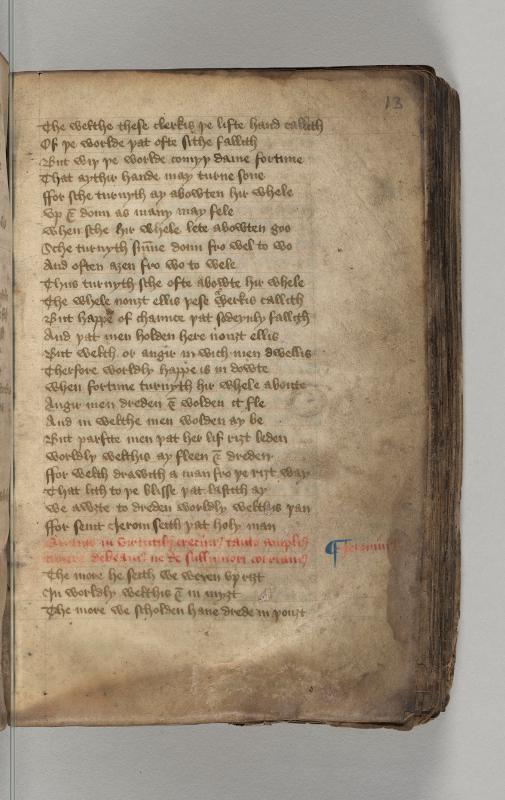 13
The welthe these clerkis þe lifte hand callith
Of þe worlde þat ofte sithe fallith
But wiþ þe worlde comyþ dame fortune
That aythir hande may turne sone
ffor sche turnyth ay abowten hir whele
Vp & doun as many may fele
when sche hir whele lete abowten goo
Sche turnyth sūme doun fro wel to wo
And often aȝen fro wo to wele
Thus turnyth sche ofte abowte hir whele
The whele nouȝt ellis þese clerkis callith
But happe of chaunce þat sodeynly fallith
And þat men holden here nouȝt ellis
But welth or angir in wich men dwellis
Therfore worldly happe is in dowte
when fortune turnyth hir whele aboute
Angir men dreden & wolden it fle
And in welthe men wolden ay be
But parfite men þat her lif riȝt leden
worldly welthis ay fleen & dreden
ffor welth drawith a man fro þe riȝt way
That lith to þe blisse þat lastith ay
we awȝte to dreden worldly welthis þan
ffor seint Jerom seith þat holy man
in virtutibȝ tanto amplius
debeamus ne de sullimiori
¶ Jeronimus
The more he seith we weren vp riȝt
In worldly welthis & in myȝt
The more we scholden haue drede in þouȝt